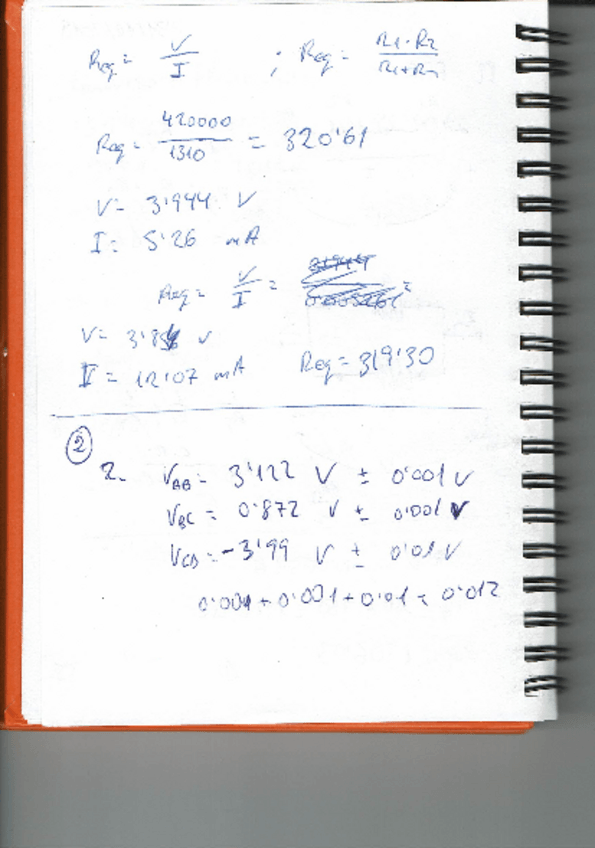 Req = V/I ; Req = R1·R2/R1+R2
Req = 420000/1310 = 320'61
V = 3'944 V
I = 5'26 mA
Req = V/I =
V = 3'854 V
I = 12'07 mA Req = 319'30
2
2. VAB = 3'122 V ± 0'001 V
VBC = 0'872 V ± 0'001 V
VCD = -3'99 V ± 0'01 V
0'001 + 0'001 + 0'01 = 0'012